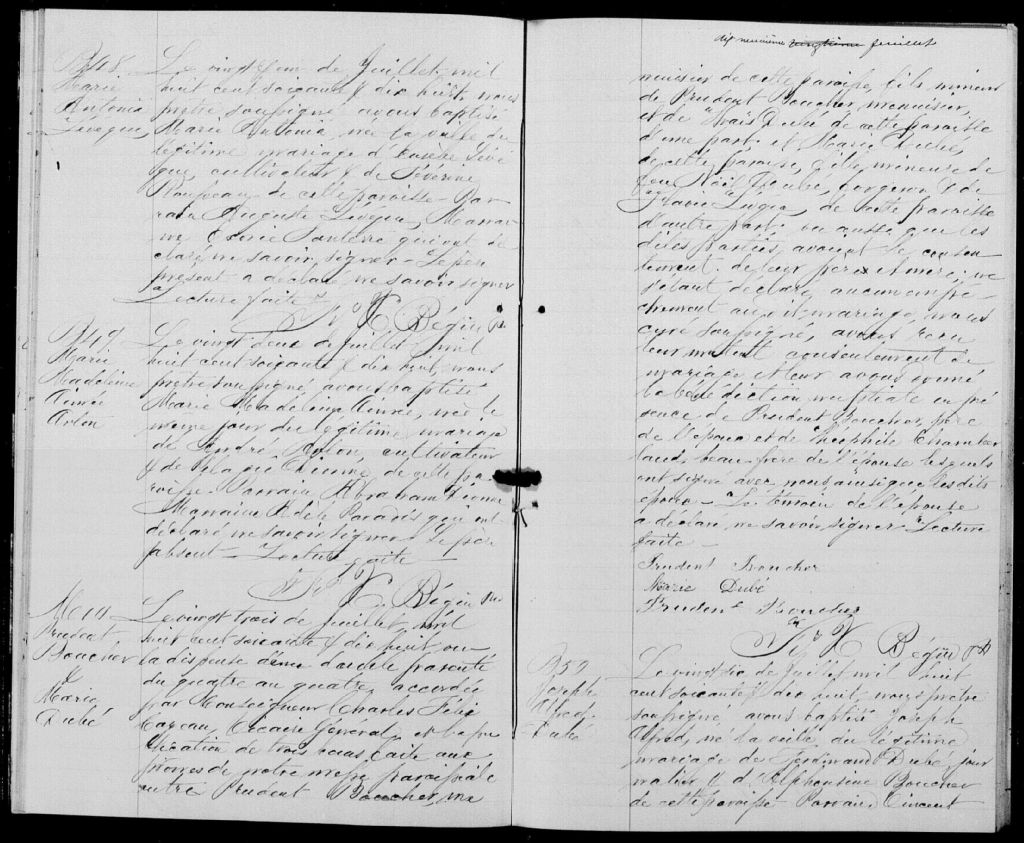 B48
Marie
Antonia
Levêque
Le vingt deux de Juillet mil
huit cent soixante & dix huit nous
prêtre soussigné avons baptisé
Marie Antonia née la veille du
légitime mariage d'Eusèbe Levê
que, cultivateur & de Séverine
de cette paroisse. Par
rain Auguste Levêque, Marrai
ne qui ont dé
claré ne savoir signer. Le père
présent a déclaré ne savoir signer
Lecture faite
Bégin Ptre
B49
Marie
Madeleine
Aimée
Le vingt deux de Juillet mil
huit cent soixante & dix huit nous
prêtre soussigné avons baptisé
Marie Madeleine Aimée, née le
même jour du légitime mariage
de André cultivateur
& de Dionne, de cette pa
roisse. Parrain Abraham Dionne
Marraine Adèle Paradis qui ont
déclaré ne savoir signer. Le père
absent. Lecture faite
Bégin Ptre
Prudent
Boucher
&
Marie
Dubé
Le vingt trois de Juillet, mil
huit cent soixante & dix huit, vu
la dispense d'une double parenté
du quatre au quatre, accordée
par Monseigneur Charles Félix
Cazeau, Vicaire Général, et la pu
blication de trois bans faite aux
prônes de notre messe paroissiale
entre Prudent Boucher, me
dix neuvième vingtième feuillet
nuisier de cette paroisse, fils mineur
de Prudent Boucher menuisier,
et de Dubé de cette paroisse
d'une part, et Marie Dubé,
de cette paroisse, fille mineure de
feu Noël Dubé, forgeron & de
Levêque, de cette paroisse
d'autre part. vu aussi que les
dites parties avaient le consen
tement de leur père et mère; ne
s'étant déclaré aucun empê-
chement au dit mariage, nous
curé soussigné, avons reçu
leur mutuel consentement de
mariage et leur avons donné
la bénédiction nuptiale en pré
sence de Prudent Boucher, père
de l'époux et de Théophile Chamber
land, beau-frère de l'épouse lesquels
ont signé avec nous ainsi que les dits
époux. Le témoin de l'épouse
a déclaré ne savoir signer. Lecture
faite
Prudent Boucher
Marie Dubé
Prudent Boucher
Bégin Ptre
Joseph
Alfred
Dubé
Le vingt six de Juillet mil huit
cent soixante & dix huit, nous prêtre
soussigné avons baptisé Joseph
Alfred, né la veille du légitime
mariage de Ferdinand Dubé, jour
nalier & d'Alphonsine Boucher
de cette paroisse. Parrain, Vincent